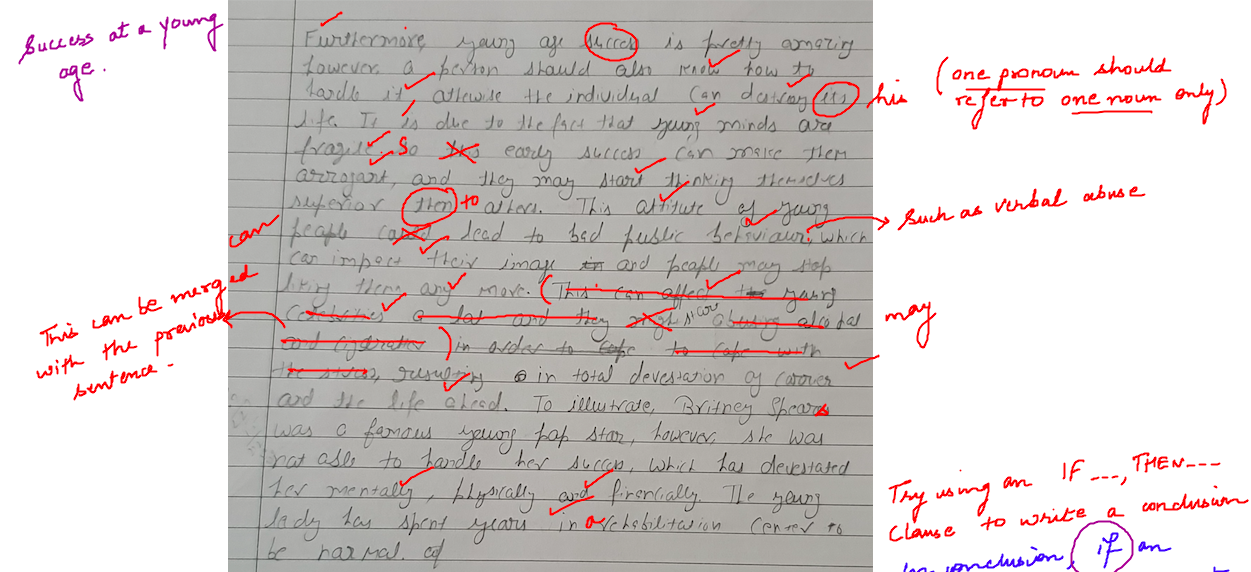 Success at a young
age.
Furthermore, young age success is pretty amazing
however a person should also know how to
handle it otherwise the individual can destroy its his (one pronoun should
refer to one noun only)
life. It is due to the fact that young minds are
fragile. So this early success can make them
arrogant, and they may start thinking themselves
superior then to others. This attitute of young
can people lead to bad public behaviour, which such as verbal abuse
can impact their image in and people may stop
liking them any more. (This can affect the young
This can be merged
with the previous
sentence -
celebrities a lot and they might start abusing alcohol may
and cigrattes) in order to cope to cope with
the stress, resulting in total devestation of career
and the life ahead. To illustrate, Britney Spears
was a famous young pop star, however, she was
not able to handle her success, which has devestated
her mentally, physically and finencially. The young
lady has spent years in a rehabilitation center to
be normal. of
Try using an IF ---, THEN ---
clause to write a conclusion
conclusion, if an